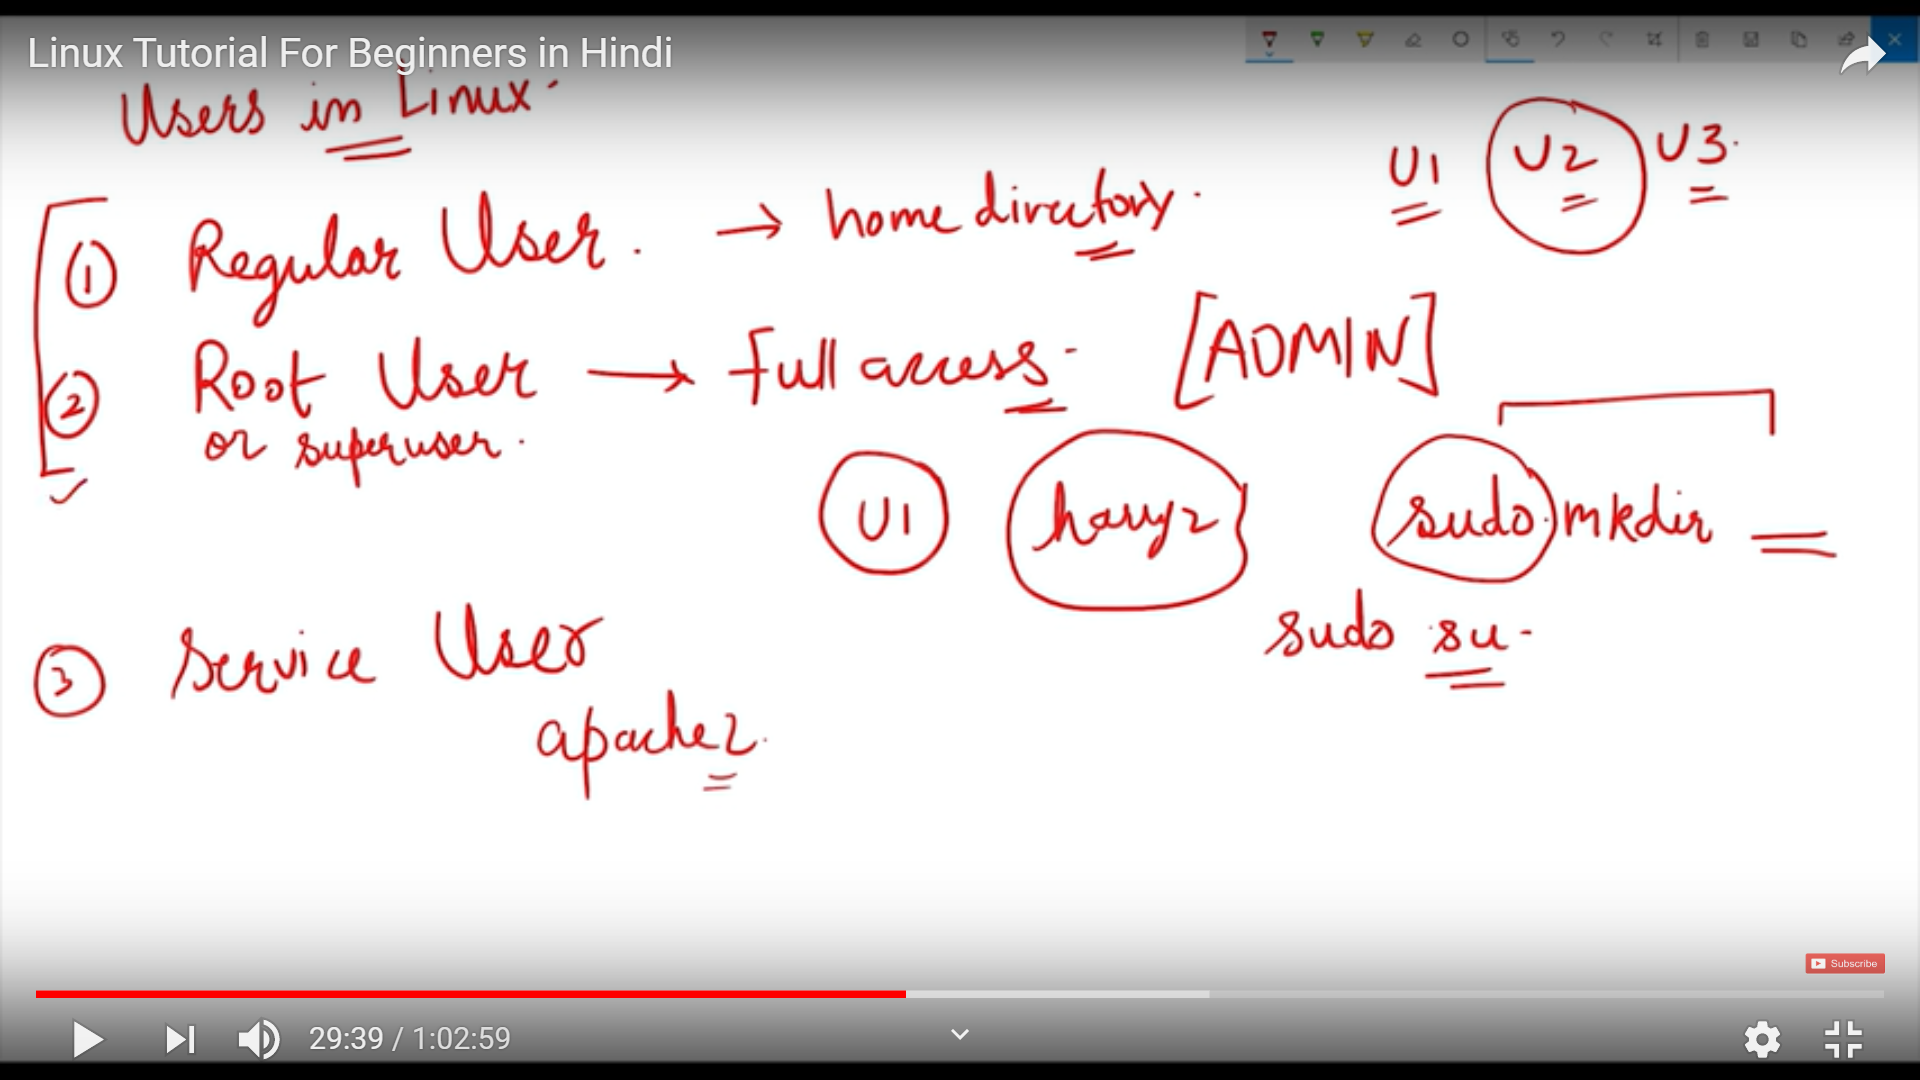 Linux Tutorial For Beginners in Hindi
Users in Linux
U1 U2 U3
① Regular User. → home directory.
② Root User → Full access. [ADMIN]
or superuser.
U1 harry2 sudo mkdir
sudo su
③ Service User
apache2
Subscribe
29:39 / 1:02:59